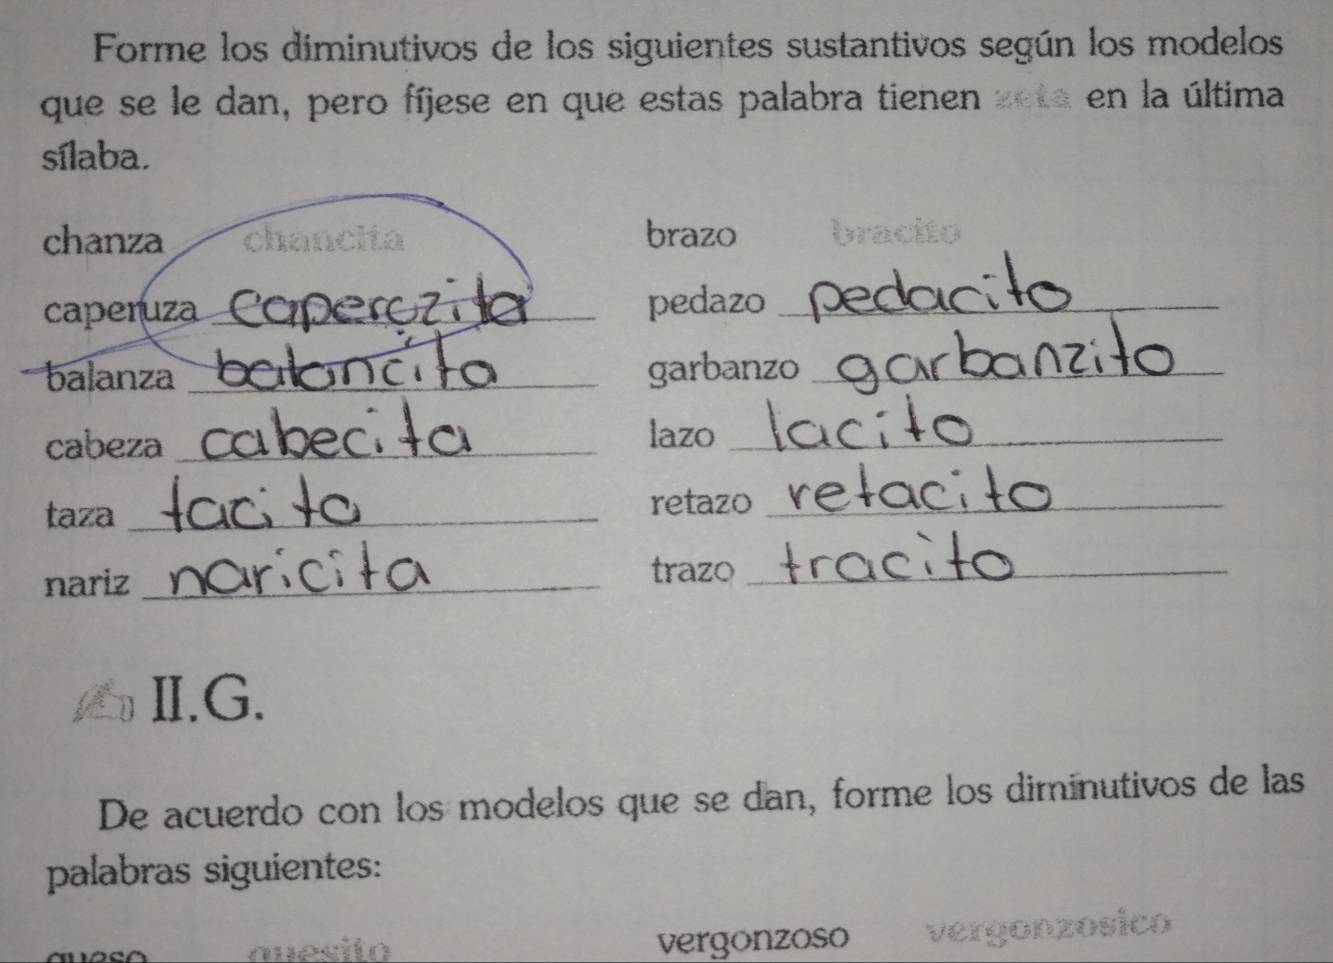 Forme los diminutivos de los siguientes sustantivos según los modelos
que se le dan, pero fíjese en que estas palabra tienen zeta en la última
sílaba.
chanza chancita brazo bracito
caperuza caperczita pedazo pedacito
balanza balancita garbanzo garbanzito
cabeza cabecita lazo lacito
taza tacita retazo retacito
nariz naricita trazo tracito
II.G.
De acuerdo con los modelos que se dan, forme los diminutivos de las
palabras siguientes:
queso quesito vergonzoso vergonzosico